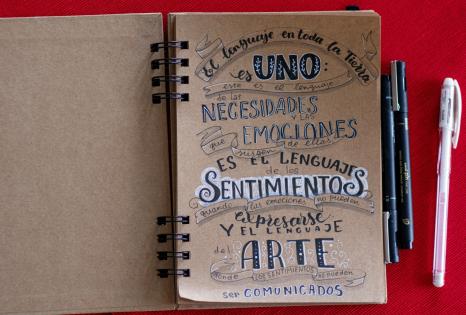 El lenguaje en toda la Tierra
es UNO:
este es el lenguaje
de las
NECESIDADES
y LAS
EMOCIONES
que surgen de ellas
ES EL LENGUAJE
de los
SENTIMIENTOS
cuando las emociones no pueden
expresarse
Y EL LENGUAJE
del ARTE
donde LOS SENTIMIENTOS no pueden
ser COMUNICADOS